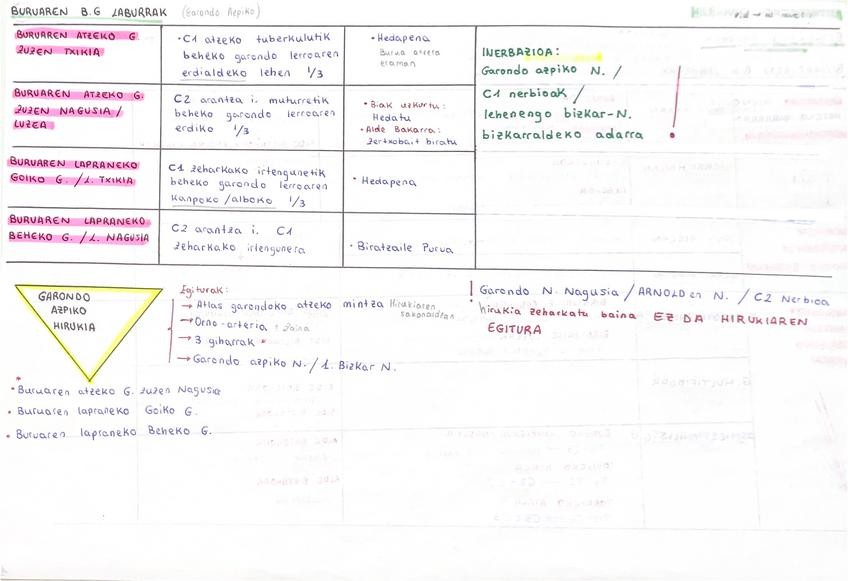 BURUAREN B.G LABURRAK (Garondo Azpiko)
BURUAREN ATZEKO G.
ZUZEN TXIKIA
• C1 atzeko tuberkulutik
beheko garondo lerroaren
erdialdeko lehen 1/3
• Hedapena
Burua atzera
eraman
INERBAZIOA:
Garondo azpiko N. /
C1 nerbioak /
lehenengo bizkar-N.
bizkarraldeko adarra !
BURUAREN ATZEKO G.
ZUZEN NAGUSIA /
LUZEA
C2 arantza i. muturretik
beheko garondo lerroaren
erdiko 1/3
• Biak uzkurtu:
Hedatu
• Alde Bakarra:
Zertxobait biratu
BURUAREN LAPRANEKO
GOIKO G. / Z. TXIKIA
C1 zeharkako irtengunetik
beheko garondo lerroaren
kanpoko/alboko 1/3
• Hedapena
BURUAREN LAPRANEKO
BEHEKO G. / Z. NAGUSIA
C2 arantza i. C1
zeharkako irtengunera
• Biratzaile Purua
GARONDO
AZPIKO
HIRUKIA
Egiturak:
→ Atlas garondoko atzeko mintza Hirukiaren
sakonaldean
→ Orno-arteria + zaina
→ 3 giharrak *
→ Garondo azpiko N. / 1. Bizkar N.
! Garondo N. Nagusia / ARNOLD en N. / C2 Nerbioa
hirukia zeharkatu baina EZ DA HIRUKIAREN
EGITURA
*
• Buruaren atzeko G. zuzen Nagusia
• Buruaren lapraneko Goiko G.
• Buruaren lapraneko Beheko G.